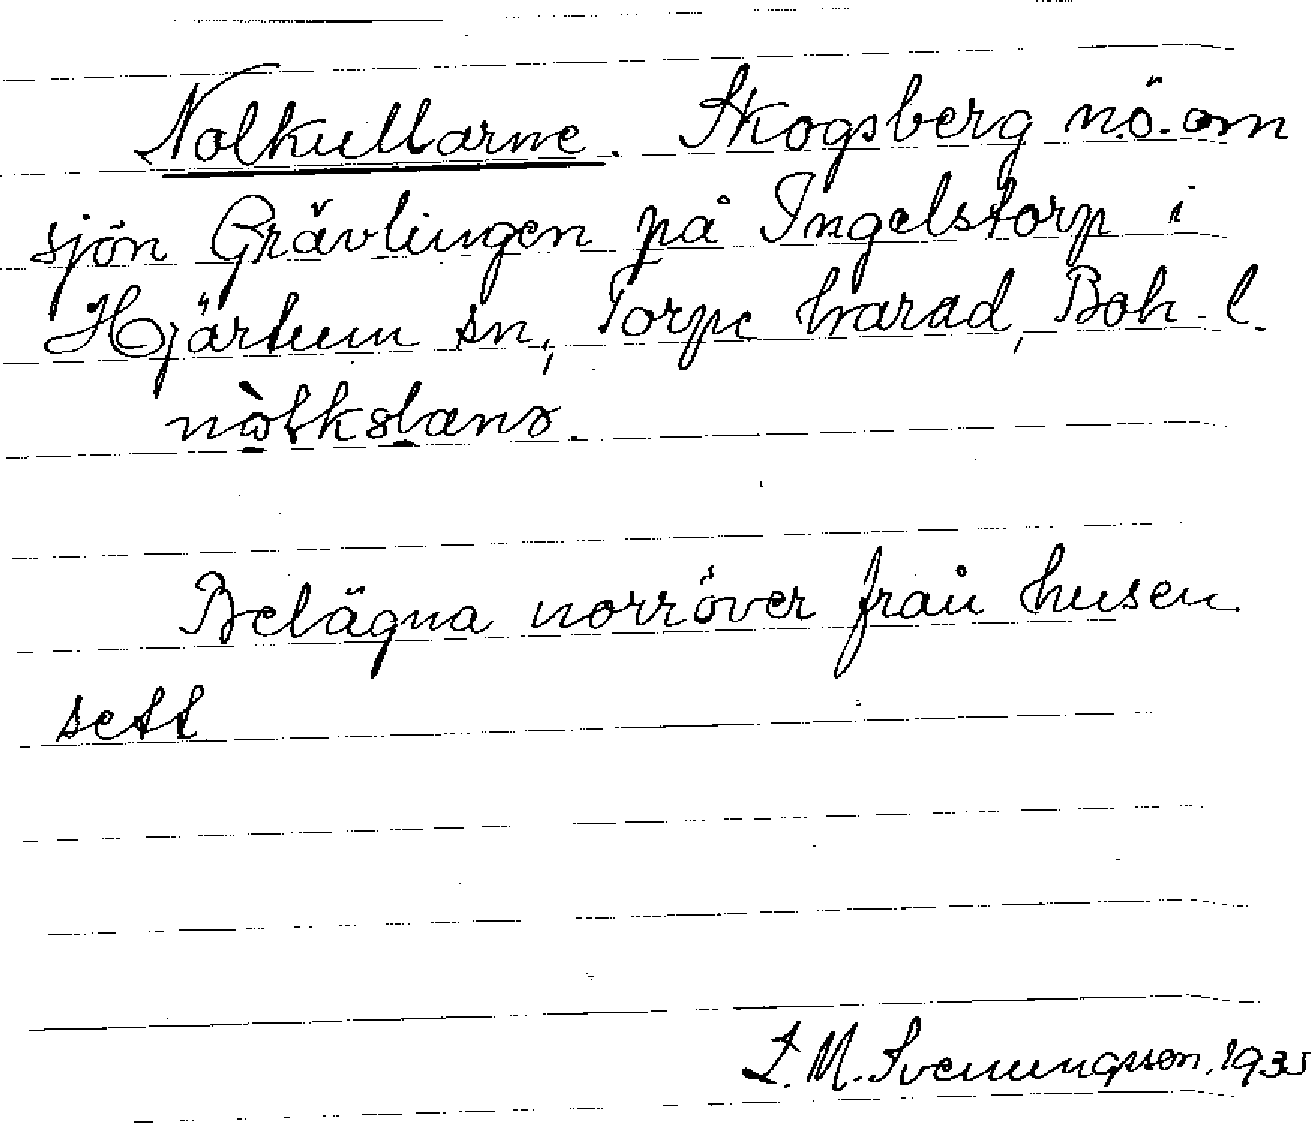 Nolkullarne. Skogsberg n.ö. om
sjön Grävlingen på Ingelstorp i
Hjärtum sn, Torpe härad, Boh. l.
Belägna norröver från husen
sett
S. M. Svenungsson. 1935